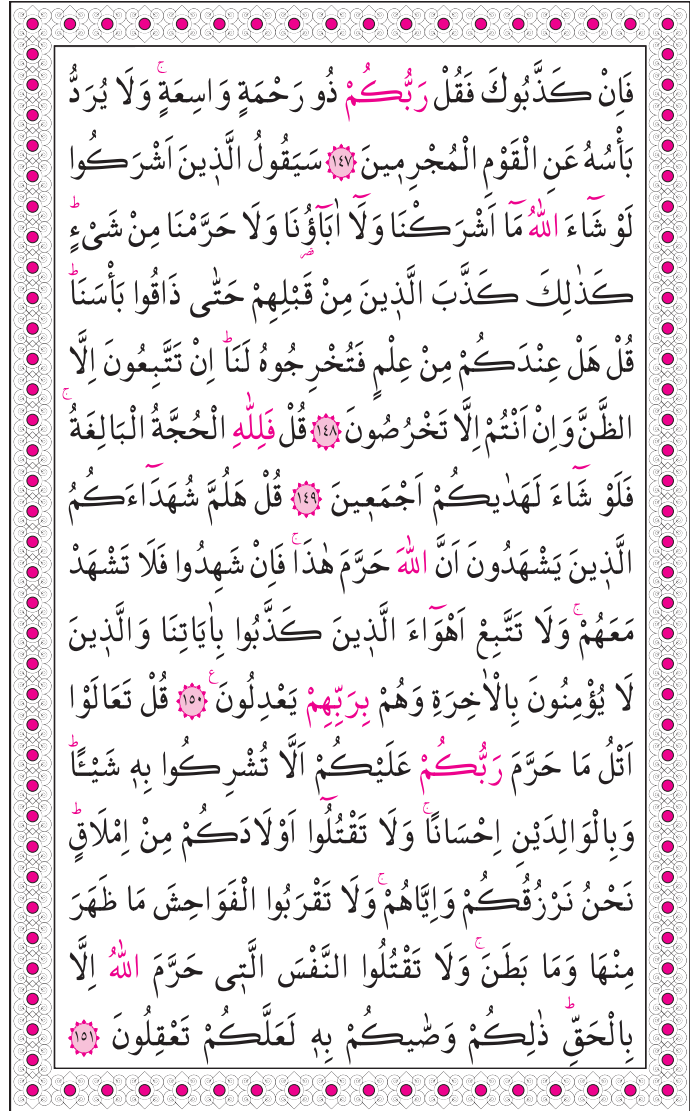 فَاِنْ كَذَّبُوكَ فَقُلْ رَبُّكُمْ ذُو رَحْمَةٍ وَاسِعَةٍۚ وَلَا يُرَدُّ
بَأْسُهُ عَنِ الْقَوْمِ الْمُجْرِمٖينَ ﴿١٤٧﴾ سَيَقُولُ الَّذٖينَ اَشْرَكُوا
لَوْ شَٓاءَ اللّٰهُ مَٓا اَشْرَكْنَا وَلَٓا اٰبَٓاؤُ۬نَا وَلَا حَرَّمْنَا مِنْ شَیْءٍؕ
كَذٰلِكَ كَذَّبَ الَّذٖينَ مِنْ قَبْلِهِمْ حَتّٰى ذَاقُوا بَأْسَنَاؕ
قُلْ هَلْ عِنْدَكُمْ مِنْ عِلْمٍ فَتُخْرِجُوهُ لَنَاؕ اِنْ تَتَّبِعُونَ اِلَّا
الظَّنَّ وَاِنْ اَنْتُمْ اِلَّا تَخْرُصُونَ ﴿١٤٨﴾ قُلْ فَلِلّٰهِ الْحُجَّةُ الْبَالِغَةُۚ
فَلَوْ شَٓاءَ لَهَدٰيكُمْ اَجْمَعٖينَ ﴿١٤٩﴾ قُلْ هَلُمَّ شُهَدَٓاءَكُمُ
الَّذٖينَ يَشْهَدُونَ اَنَّ اللّٰهَ حَرَّمَ هٰذَاۚ فَاِنْ شَهِدُوا فَلَا تَشْهَدْ
مَعَهُمْۚ وَلَا تَتَّبِعْ اَهْوَٓاءَ الَّذٖينَ كَذَّبُوا بِاٰيَاتِنَا وَالَّذٖينَ
لَا يُؤْمِنُونَ بِالْاٰخِرَةِ وَهُمْ بِرَبِّهِمْ يَعْدِلُونَࣖ ﴿١٥٠﴾ قُلْ تَعَالَوْا
اَتْلُ مَا حَرَّمَ رَبُّكُمْ عَلَيْكُمْ اَلَّا تُشْرِكُوا بِهٖ شَيْـًٔاؕ
وَبِالْوَالِدَيْنِ اِحْسَانًاۚ وَلَا تَقْتُلُٓوا اَوْلَادَكُمْ مِنْ اِمْلَاقٍؕ
نَحْنُ نَرْزُقُكُمْ وَاِيَّاهُمْۚ وَلَا تَقْرَبُوا الْفَوَاحِشَ مَا ظَهَرَ
مِنْهَا وَمَا بَطَنَۚ وَلَا تَقْتُلُوا النَّفْسَ الَّتٖى حَرَّمَ اللّٰهُ اِلَّا
بِالْحَقِّؕ ذٰلِكُمْ وَصّٰيكُمْ بِهٖ لَعَلَّكُمْ تَعْقِلُونَ ﴿١٥١﴾